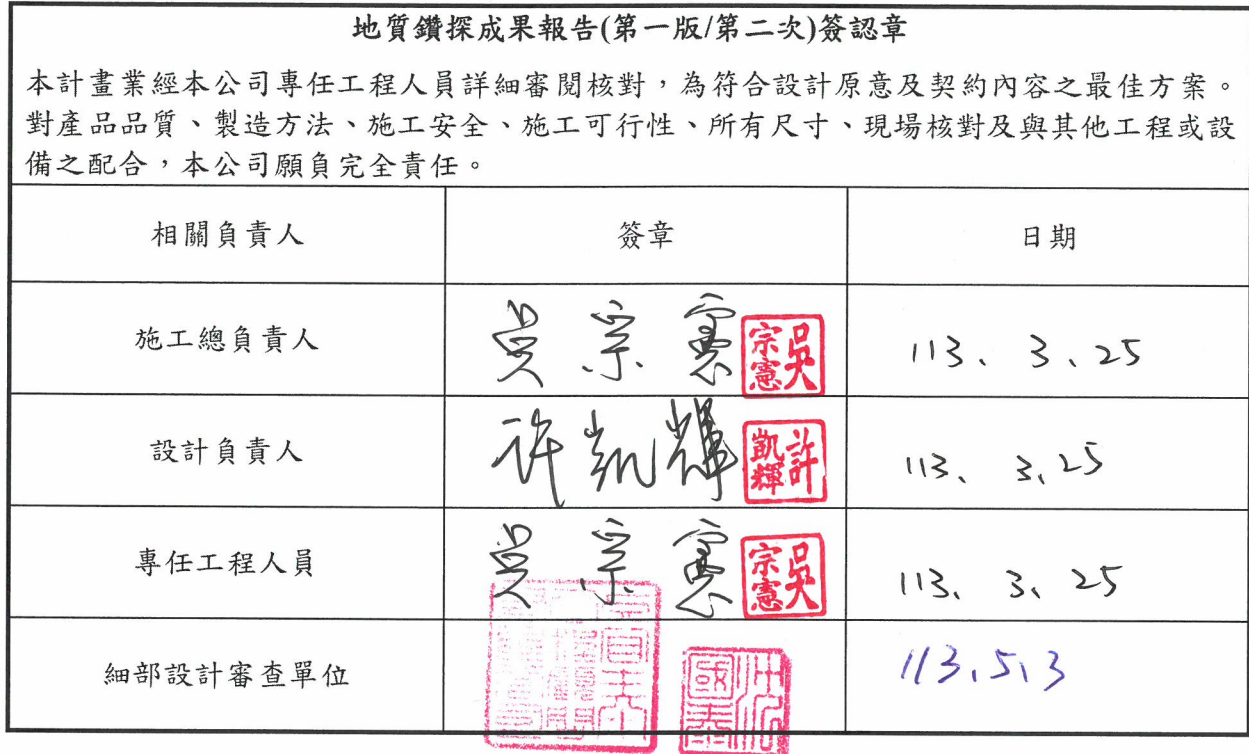 地質鑽探成果報告(第一版/第二次)簽認章
本計畫業經本公司專任工程人員詳細審閱核對，為符合設計原意及契約內容之最佳方案。
對產品品質、製造方法、施工安全、施工可行性、所有尺寸、現場核對及與其他工程或設
備之配合，本公司願負完全責任。
相關負責人 簽章 日期
施工總負責人 吳宗憲 吳宗憲 113、3、25
設計負責人 許凱輝 許凱輝 113、3、25
專任工程人員 吳宗憲 吳宗憲 113、3、25
細部設計審查單位 沈國泰 113、5、3